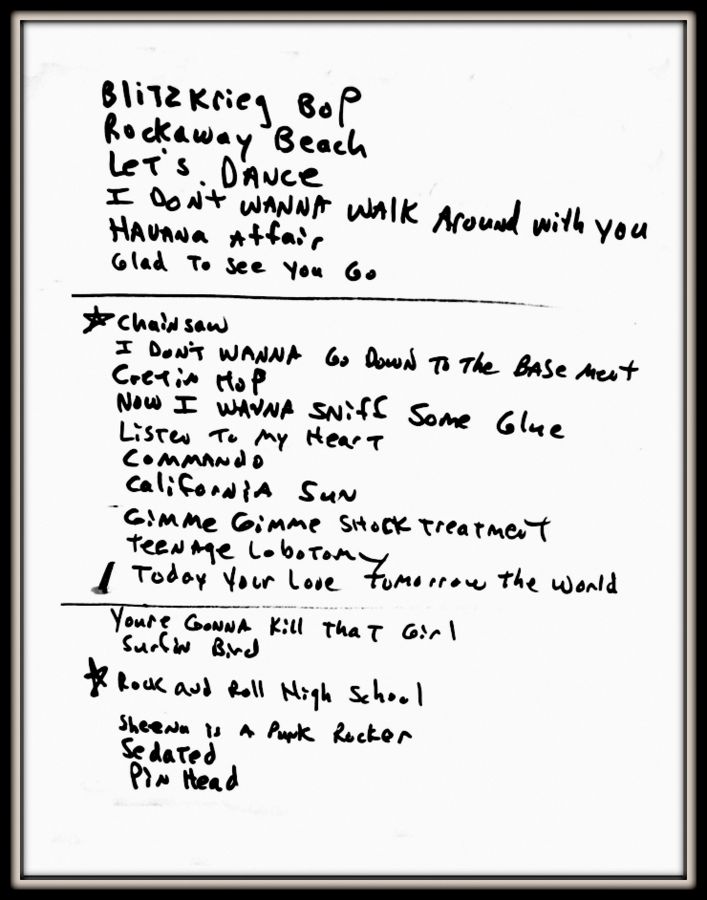 Blitzkrieg Bop
Rockaway Beach
Let's Dance
I Don't WANNA WALK Around with you
Havana Affair
Glad To See You Go
Chainsaw
I DON'T WANNA Go Down To The BASEment
Cretin Hop
Now I WANNA SNiff Some Glue
Listen To My Heart
Commando
California Sun
Gimme Gimme SHock Treatment
Teenage Lobotomy
Today Your Love tomorrow the world
Youre GONNA Kill That Girl
Surfin Bird
Rock and Roll High School
Sheena is A Punk Rocker
Sedated
Pin Head